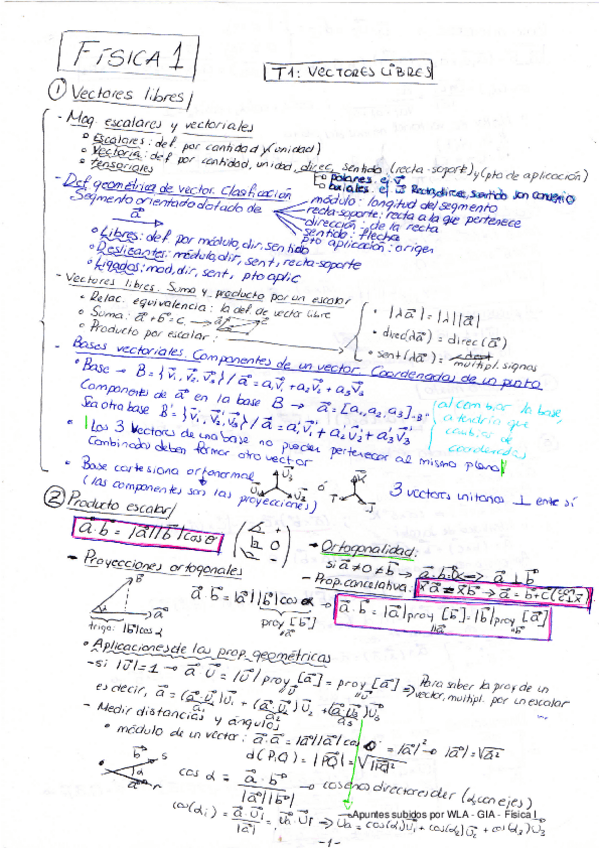 FÍSICA 1
T1: VECTORES LIBRES
① Vectores libres/
- Mag. escalares y vectoriales
• Escalares: def. por cantidad y (unidad)
• Vectorial: def. por cantidad, unidad, direc, sentido, (recta-soporte) y (pto de aplicación)
• tensoriales
polares
axiales
Recta, direc, sentido son convenio
- Def geométrica de vector. Clasificación
Segmento orientado dotado de
módulo: longitud del segmento
recta-soporte: recta a la que pertenece
dirección: de la recta
sentido: flecha
pto aplicación: origen
a⃗
• Libres: def. por módulo, dir, sentido
• Deslizantes: módulo, dir, sent, recta-soporte
• Ligados: mod, dir, sent, pto aplic
- Vectores libres. Suma y producto por un escalar
• Relac. equivalencia: la def. de vector libre
• Suma: a⃗ + b⃗ = c⃗
• Producto por escalar:
• |λa⃗| = |λ||a⃗|
• direc(λa⃗) = direc(a⃗)
• sent(λa⃗) = multipl. signos
- Bases vectoriales. Componentes de un vector. Coordenadas de un punto
• Base → B = {v⃗₁, v⃗₂, v⃗₃} / a⃗ = a₁v⃗₁ + a₂v⃗₂ + a₃v⃗₃
Componentes de a⃗ en la base B → a⃗ = [a₁, a₂, a₃]B
Sea otra base B' = {v⃗₁', v⃗₂', v⃗₃'} / a⃗ = a₁'v⃗₁' + a₂'v⃗₂' + a₃'v⃗₃'
al cambiar la base,
cambias de
coordenadas
• Los 3 vectores de una base no pueden pertenecer al mismo plano
Combinados deben formar otro vector
• Base cartesiana ortonormal
(las componentes son las proyecciones)
ó
3 vectores unitarios ⊥ entre sí
② Producto escalar/
a⃗·b⃗ = |a⃗||b⃗|cosθ
- Ortogonalidad:
si a⃗ ≠ 0 ≠ b⃗ → a⃗·b⃗ = 0 <=> a⃗ ⊥ b⃗
- Prop. cancelativa:
- Proyecciones ortogonales
b⃗
a⃗
trigo: |b⃗|cosα
a⃗·b⃗ = |a⃗||b⃗|cosα →
proy [b⃗]
a⃗·b⃗ = |a⃗|proy [b⃗] = |b⃗|proy [a⃗]
• Aplicaciones de las prop. geométricas
- si |u⃗| = 1 → a⃗·u⃗ = |u⃗|proy [a⃗] = proy [a⃗] ⇒
Para saber la proy de un
vector, multipl. por un escalar
es decir, a⃗ = (a⃗·u⃗₁)u⃗₁ + (a⃗·u⃗₂)u⃗₂ + (a⃗·u⃗₃)u⃗₃
a₁ a₂ a₃
- Medir distancias y ángulos
• módulo de un vector: a⃗·a⃗ = |a⃗||a⃗|cos 0 = |a⃗|² → |a⃗| = √a⃗²
d(P,Q) = |PQ| = √PQ²
b⃗ s
α
a⃗ r
cos α = a⃗·b⃗ / |a⃗||b⃗|
→ coseno directores der (α con ejes)
cos(αᵢ) = a⃗·u⃗ᵢ / |a⃗| = u⃗a·u⃗ᵢ ⇒ u⃗a = cos(α₁)u⃗₁ + cos(α₂)u⃗₂ + cos(α₃)u⃗₃
Apuntes subidos por WLA - GIA - Física I
-1-